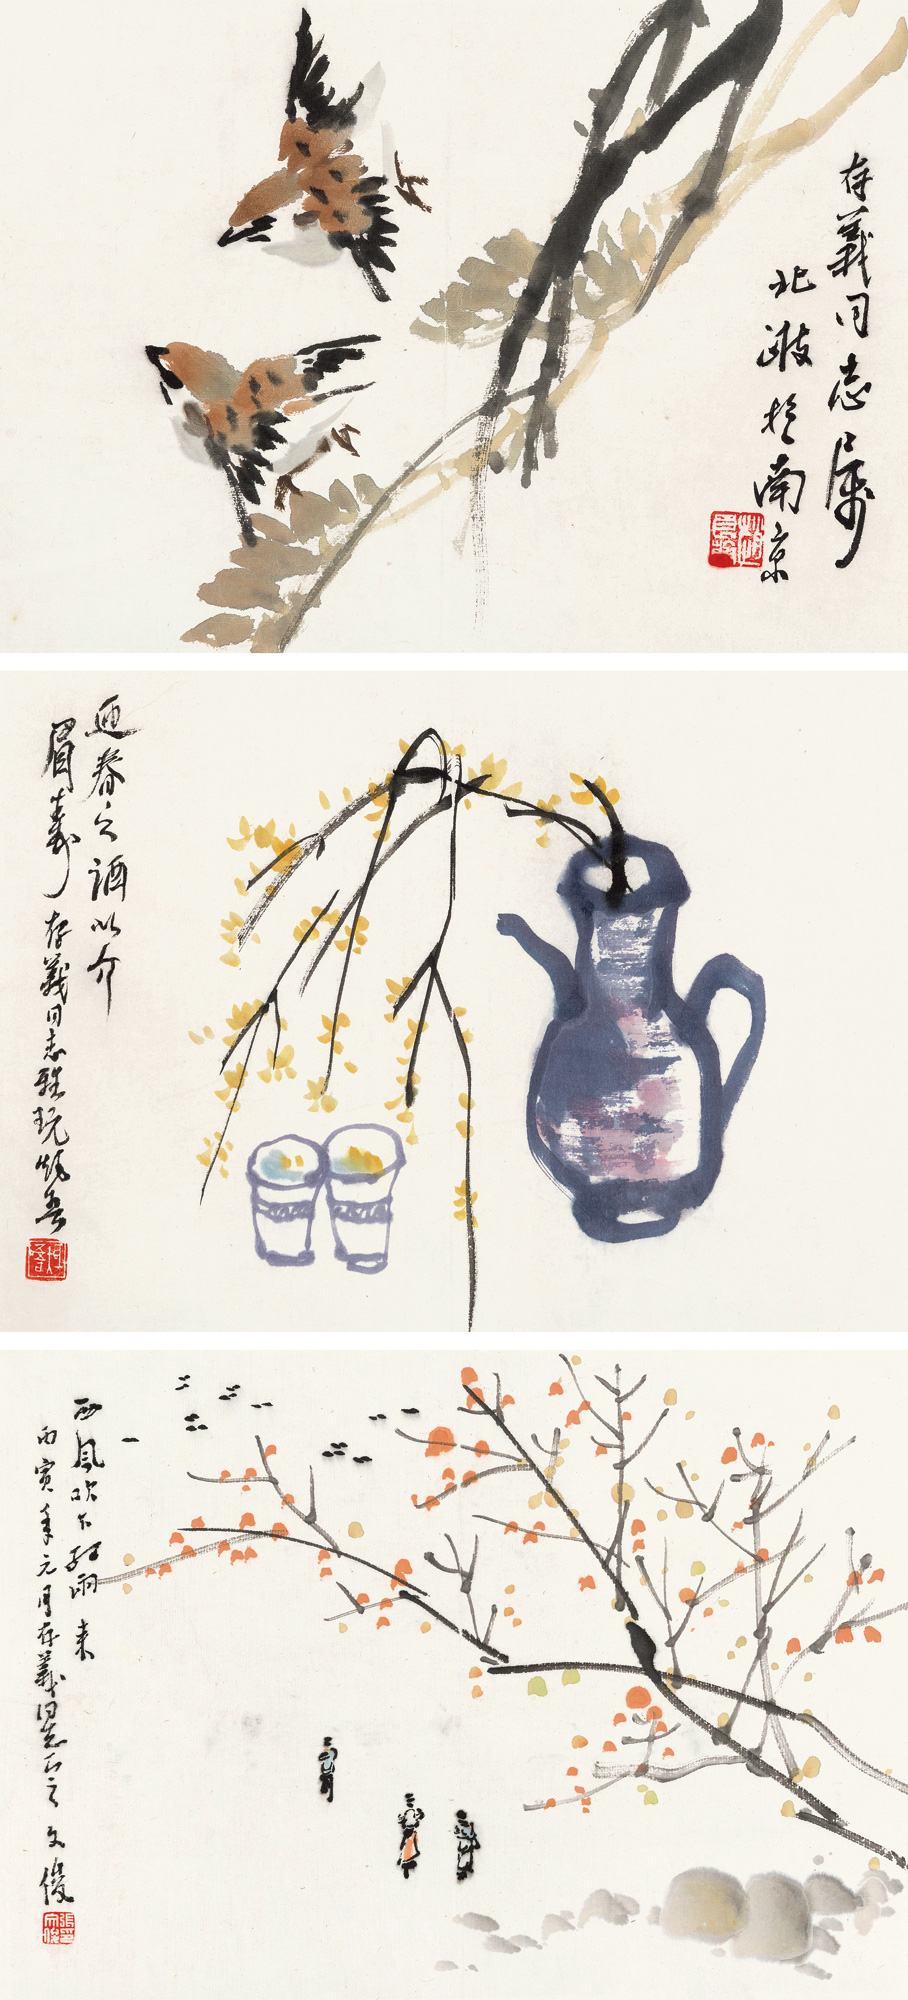 存義同志属
北 於南京
迎春之酒以介
眉寿 存義同志雅玩
西風吹下紅雨来
丙寅年元月存義同志正之 文俊